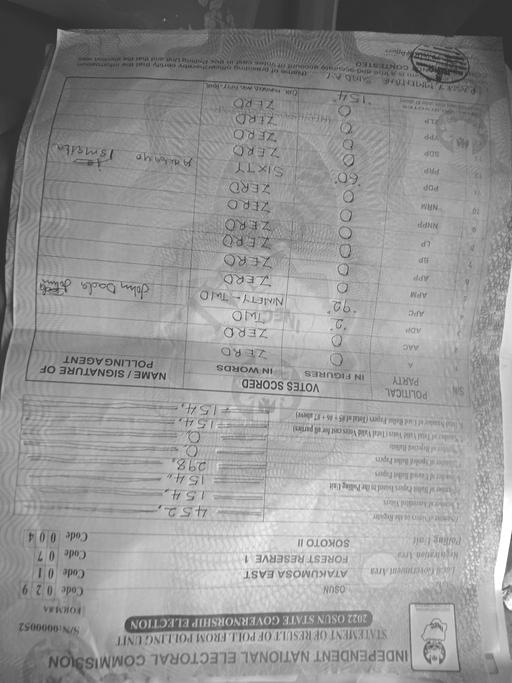 INDEPENDENT NATIONAL ELECTORAL COMMISSION
STATEMENT OF RESULT OF POLL FROM POLLING UNIT
2022 OSUN STATE GOVERNORSHIP ELECTION
S/N: 0000052
FORM EC 8A
OSUN Code 0 2 9
Local Government Area ATAKUMOSA EAST Code 0 1
Registration Area FOREST RESERVE 1 Code 0 7
Polling Unit SOKOTO II Code 0 0 4
Number of Voters on the Register 452
Number of Accredited Voters 154
Number of Ballot Papers Issued to the Polling Unit 154
Number of Unused Ballot Papers 298
Number of Spoiled Ballot Papers 0
Number of Rejected Ballots 0
Number of Total Valid Votes (Total Valid Votes cast for all parties) 154
Total Number of Used Ballot Papers (Total of 5 + 6 + 7 above) 154
S/N POLITICAL PARTY VOTES SCORED NAME / SIGNATURE OF POLLING AGENT
IN FIGURES IN WORDS
1 A 0 ZERO
2 AAC 0 ZERO
3 ADP 2 TWO
4 APC 92 NINETY-TWO John Dada
5 APM 0 ZERO
6 APP 0 ZERO
7 BP 0 ZERO
8 LP 0 ZERO
9 NNPP 0 ZERO
10 NRM 0 ZERO
11 PDP 60 SIXTY
12 PRP 0 ZERO
13 SDP 0 ZERO
14 YPP 0 ZERO
15 ZLP 0 ZERO
154
CONTESTED